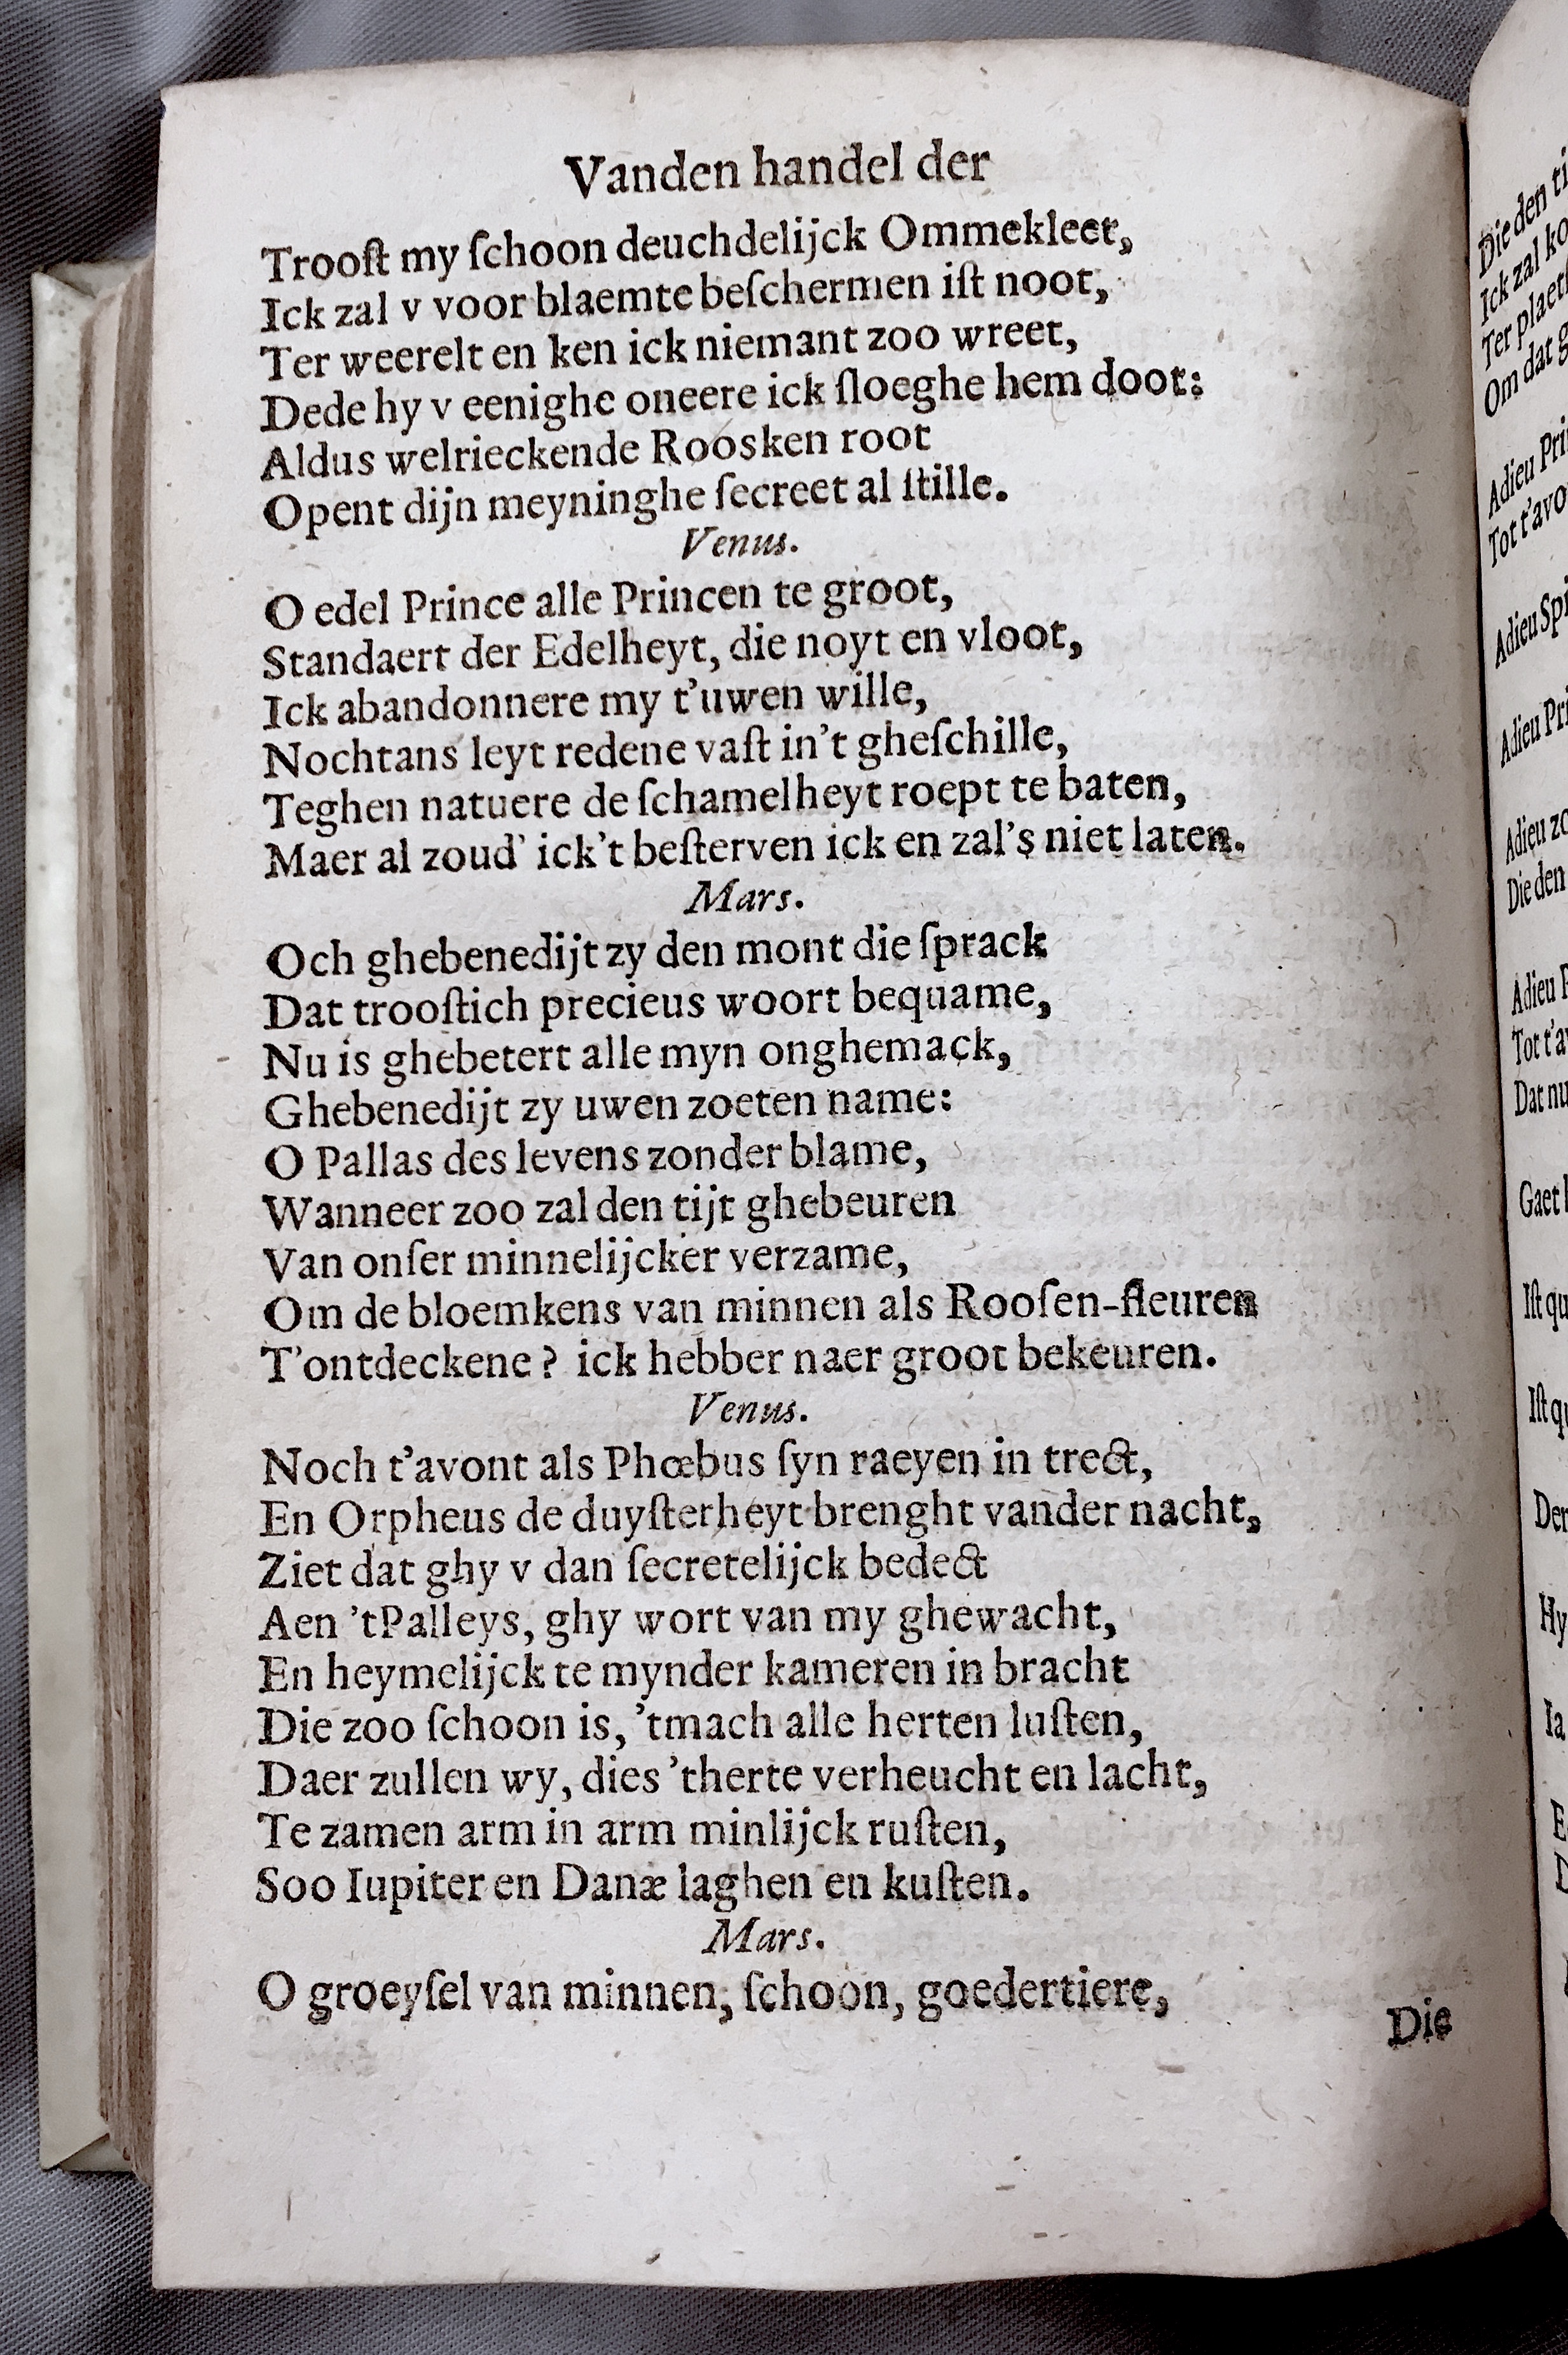 Vanden handel der
Trooſt my ſchoon deuchdelijck Ommekleet,
Ick zal v voor blaemte beſchermen iſt noot,
Ter weerelt en ken ick niemant zoo wreet,
Dede hy v eenighe oneere ick ſloeghe hem doot:
Aldus welrieckende Roosken root
Opent dijn meyninghe ſecreet al ſtille.
Venus.
O edel Prince alle Princen te groot,
Standaert der Edelheyt, die noyt en vloot,
Ick abandonnere my t'uwen wille,
Nochtans leyt redene vaſt in't gheſchille,
Teghen natuere de ſchamelheyt roept te baten,
Maer al zoud' ick't beſterven ick en zal's niet laten.
Mars.
Och ghebenedijt zy den mont die ſprack
Dat trooſtich precieus woort bequame,
Nu is ghebetert alle myn onghemack,
Ghebenedijt zy uwen zoeten name:
O Pallas des levens zonder blame,
Wanneer zoo zal den tijt ghebeuren
Van onſer minnelijcker verzame,
Om de bloemkens van minnen als Rooſen-fleuren
T'ontdeckene? ick hebber naer groot bekeuren.
Venus.
Noch t'avont als Phœbus ſyn raeyen in trect,
En Orpheus de duyſterheyt brenght vander nacht,
Ziet dat ghy v dan ſecretelijck bedect
Aen 'tPalleys, ghy wort van my ghewacht,
En heymelijck te mynder kameren in bracht
Die zoo ſchoon is, 'tmach alle herten luſten,
Daer zullen wy, dies 'therte verheucht en lacht,
Te zamen arm in arm minlijck ruſten,
Soo Iupiter en Danæ laghen en kuſten.
Mars.
O groeyſel van minnen, ſchoon, goedertiere,
Die
Die den
Ick zal
Ter
Om dat
Adieu
Tot
Adieu
Adieu
Adieu
Die den
Adieu
Tot
Dat nu
Gaet
Iſt
Iſt
Hy
Ia